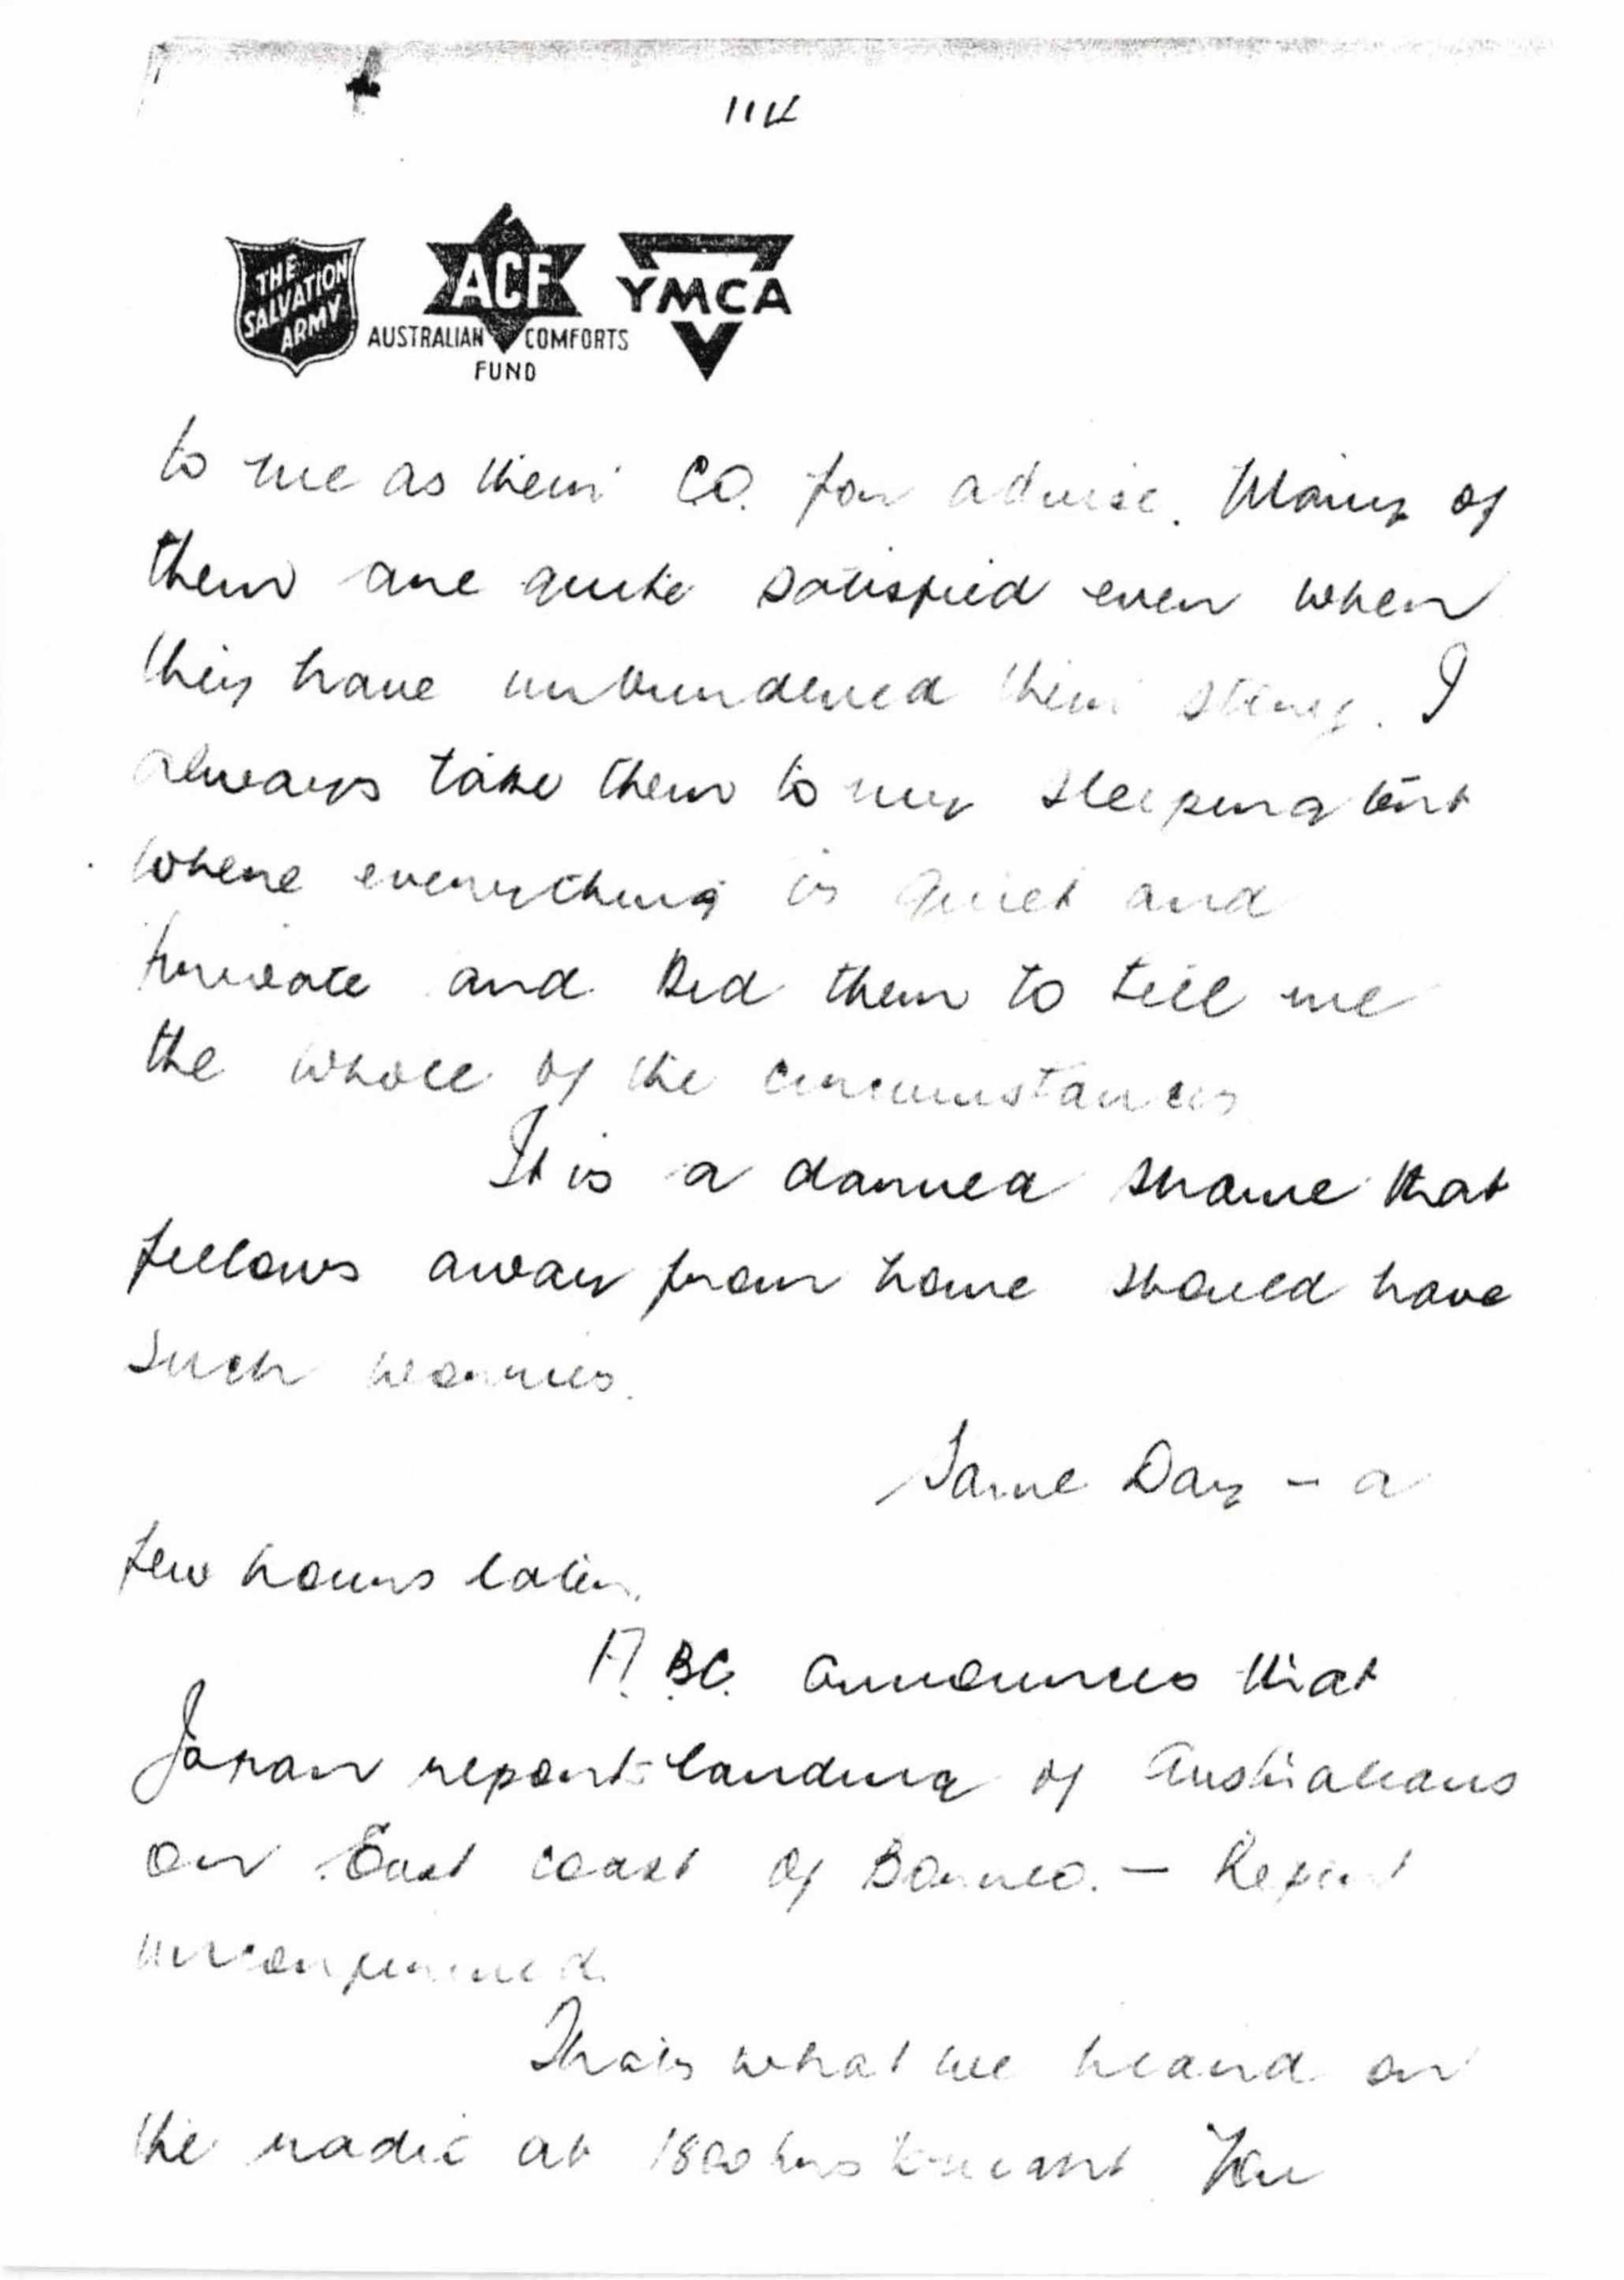 THE
SALVATION
ARMY
ACF
AUSTRALIAN COMFORTS
FUND
YMCA
to me as their CO. for advise. Many of
them are quite satisfied even when
they have unburdened their story. I
always take them to my sleeping tent
where everything is quiet and
private and bid them to tell me
the whole of the circumstances
It is a damned shame that
fellows away from home should have
such worries.
Same Day - a
few hours later.
A.B.C. announces that
Japan reports landing of Australians
on East coast of Borneo. - Report
unconfirmed.
Thats what we heard on
the radio at 1800 hrs tonight. You